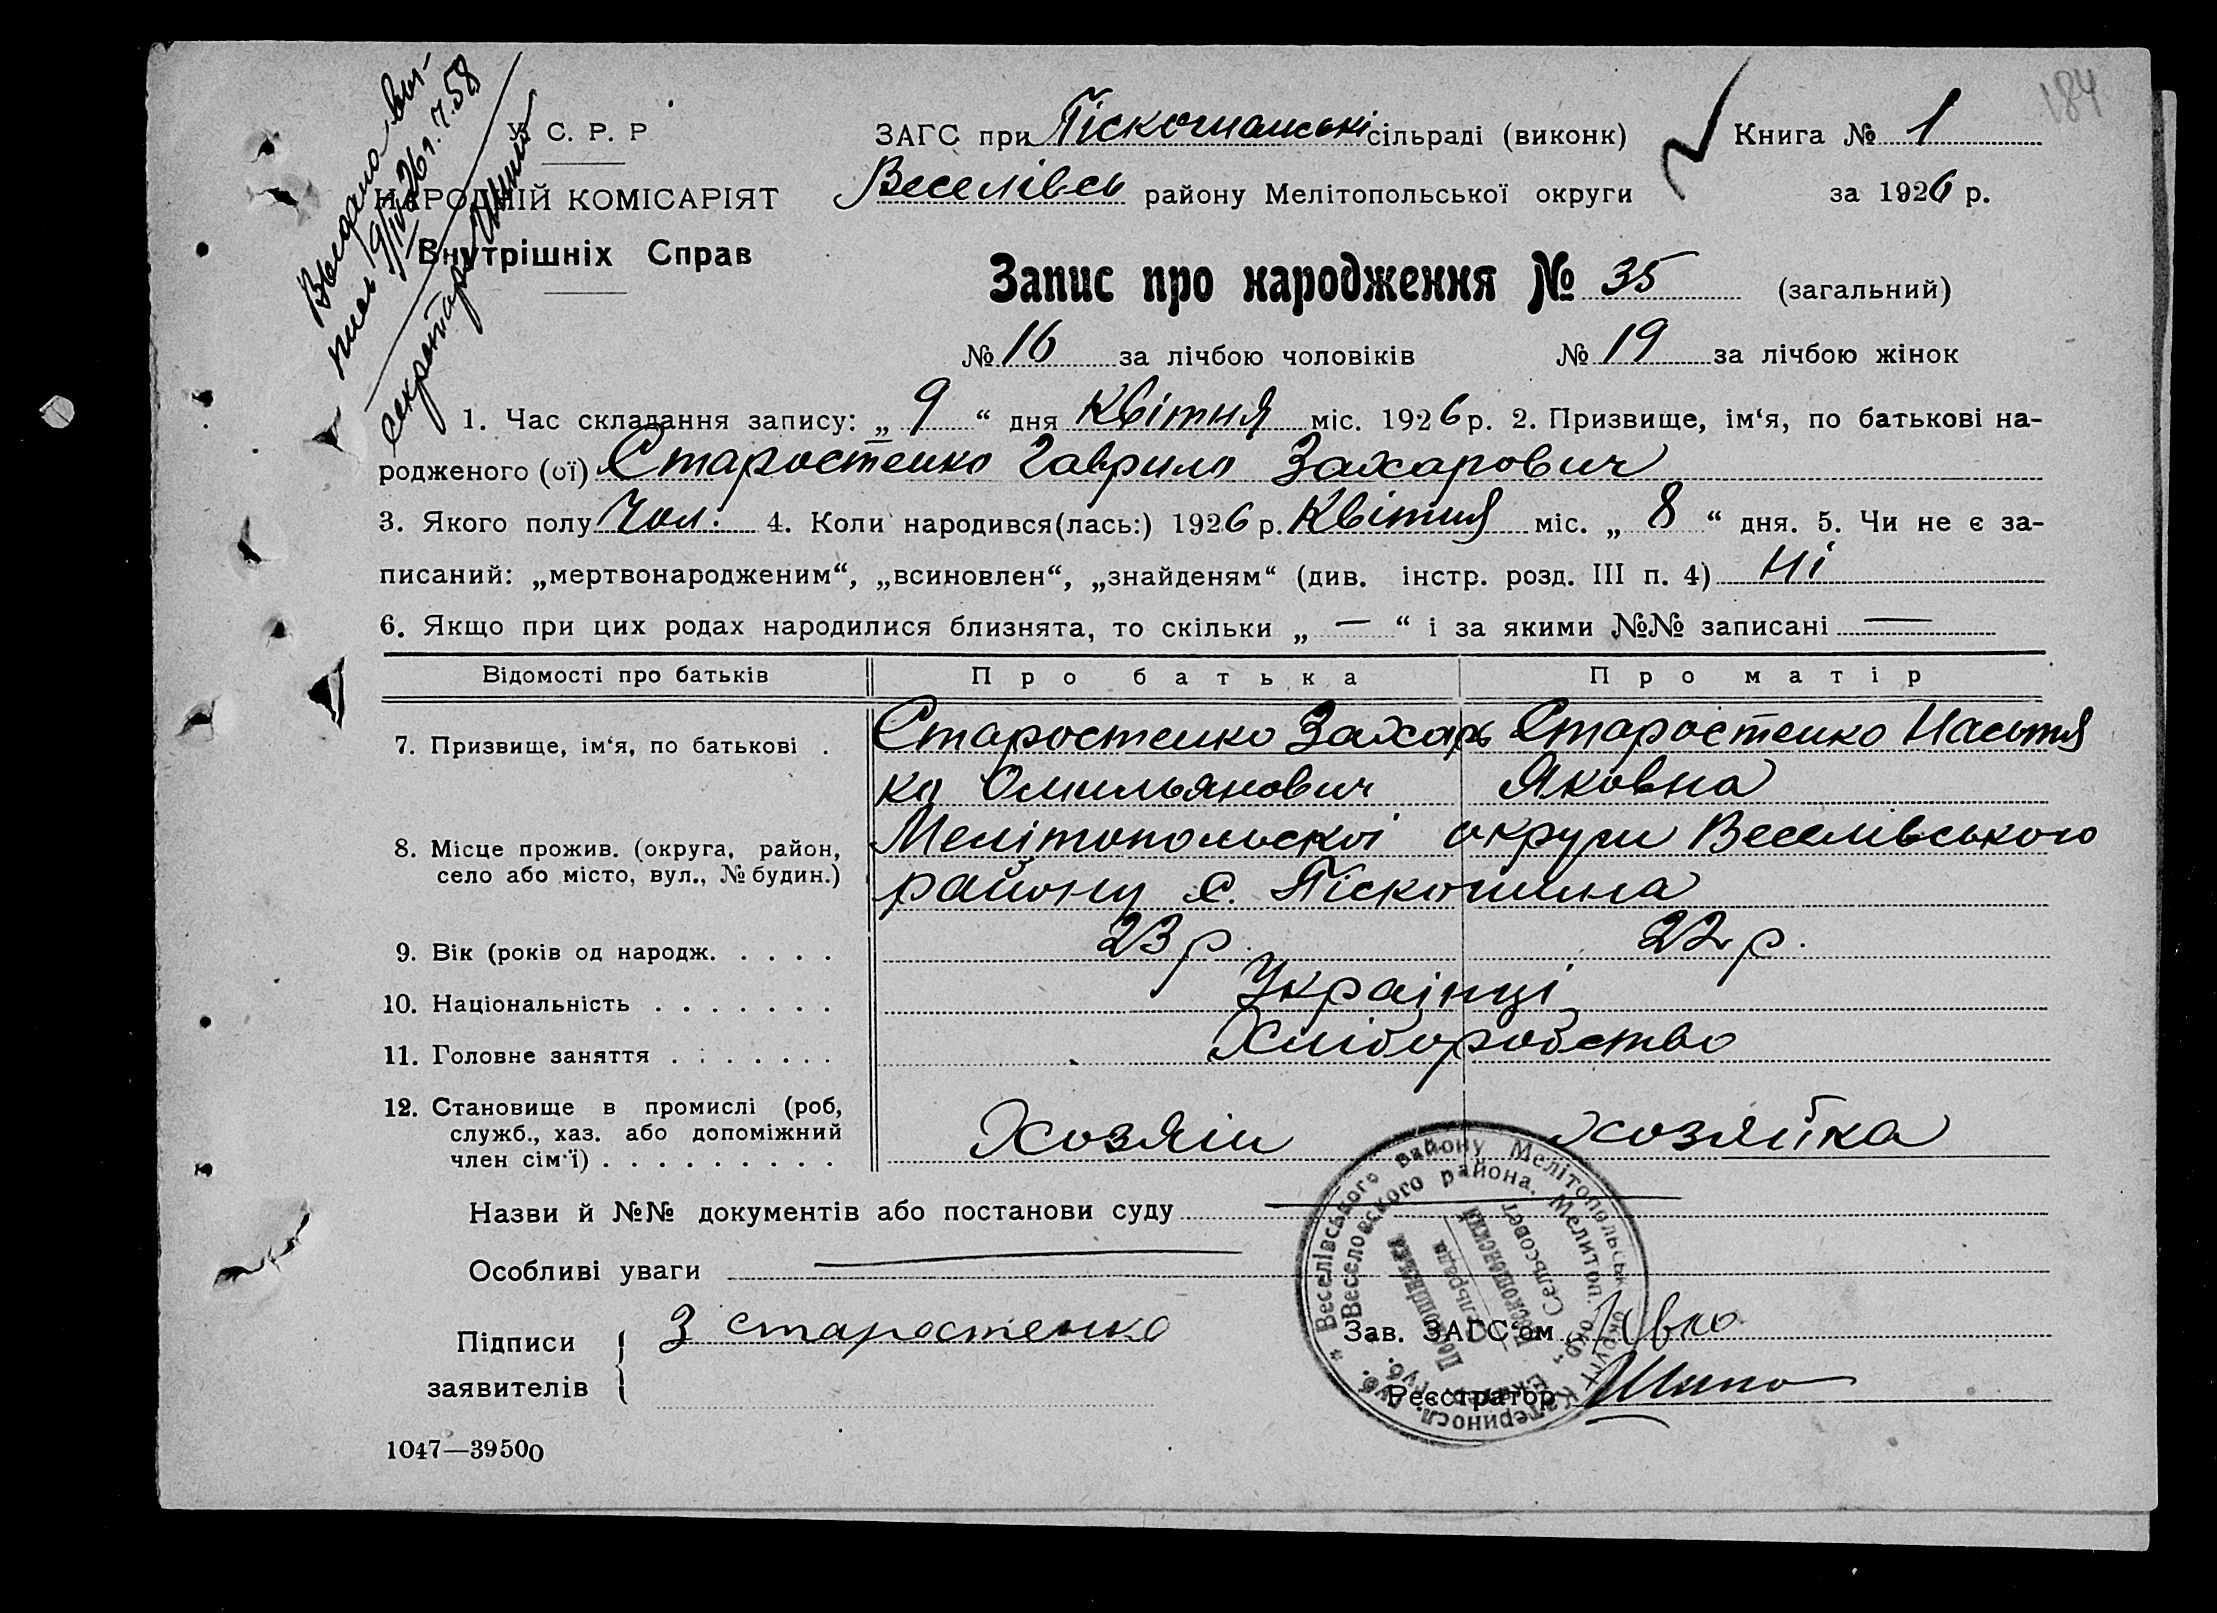 184
Выдана вы-
пись 9/IV 26 г. ч. 58
секретарь
У. С. Р. Р
НАРОДНІЙ КОМІСАРІЯТ
Внутрішніх Справ
ЗАГС при Піскошанські сільраді (виконк)
Книга № 1
Веселівсь району Мелітопольської округи
за 1926 р.
Запис про народження № 35 (загальний)
№ 16 за лічбою чоловіків № 19 за лічбою жінок
1. Час складання запису: „ 9 “ дня Квітня міс. 1926 р. 2. Призвище, ім‘я, по батькові на-
родженого (ої) Старостенко Гаврило Захарович
3. Якого полу Чол. 4. Коли народився(лась:) 1926 р. Квітня міс. „ 8 “ дня. 5. Чи не є за-
писаний: „мертвонародженим“, „всиновлен“, „знайденям“ (див. інстр. розд. III п. 4) Ні
6. Якщо при цих родах народилися близнята, то скільки „ — “ і за якими №№ записані —
Відомості про батьків Про батька Про матір
7. Призвище, ім‘я, по батькові . Старостенко Захар Старостенко Настя
ко Омильянович Яковна
8. Місце прожив. (округа, район, Мелітопольскоі округи Веселівського
село або місто, вул., № будин.) району с. Піскошина
9. Вік (років од народж. . . . . 23 р. 22 р.
10. Національність . . . . . . . Українці
11. Головне заняття . . . . . . . Хліборобство
12. Становище в промислі (роб,
служб., хаз. або допоміжний Хозяін хозяйка
член сім‘ї) . . . . . . . . .
Назви й №№ документів або постанови суду —
Особливі уваги —
Підписи З старостенко
заявителів
Зав. ЗАГС‘ом
Реєстратор
* Веселівського району Мелітопольськ. округи Катериносл. губ.
Веселовского района, Мелитоп. окр. Екатер. губ.
Сельсовет
1047—39500